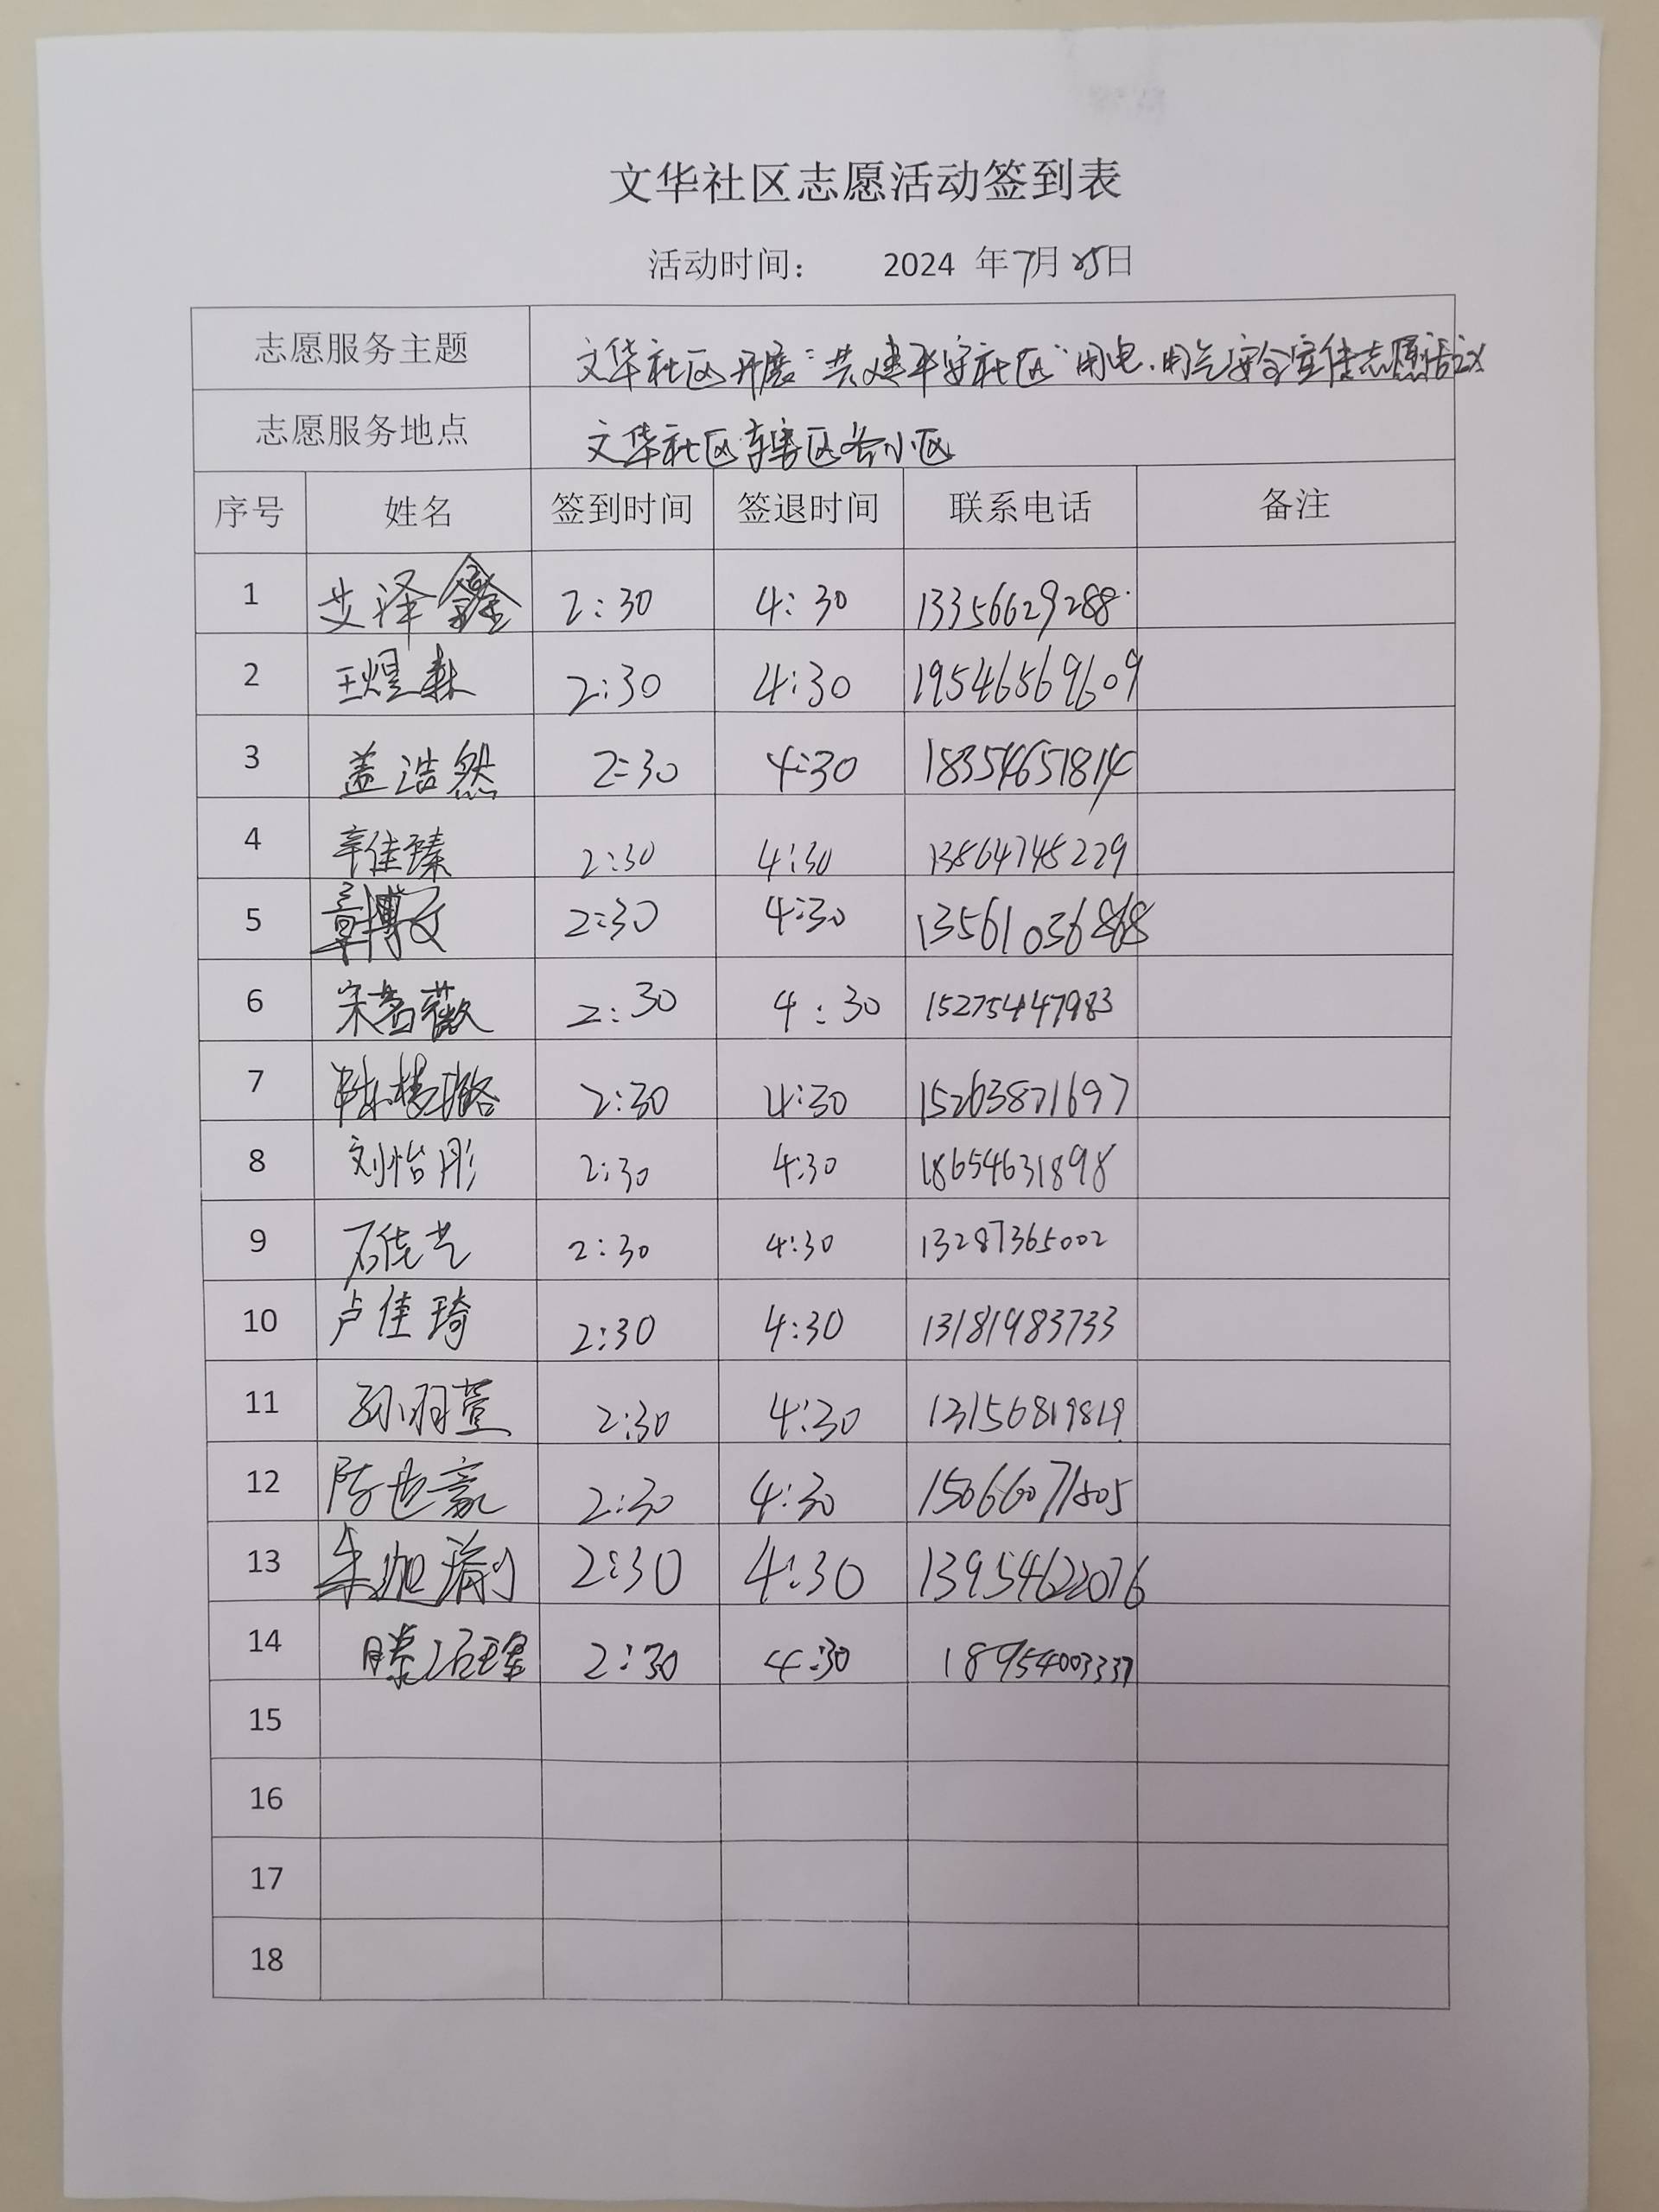 文华社区志愿活动签到表
活动时间： 2024 年7月25日
志愿服务主题 文华社区开展“共建平安社区”用电、用气安全宣传志愿活动
志愿服务地点 文华社区辖区各小区
序号 姓名 签到时间 签退时间 联系电话 备注
1 艾泽鑫 2:30 4:30 13356629288
2 王煜森 2:30 4:30 19546569609
3 盖浩然 2:30 4:30 18354651814
4 辛佳臻 2:30 4:30 13864748229
5 章博文 2:30 4:30 13561036868
6 宋茗薇 2:30 4:30 15275447983
7 2:30 4:30 15263821697
8 刘怡彤 2:30 4:30 18654631898
9 石佳艺 2:30 4:30 13287365002
10 卢佳琦 2:30 4:30 13181983733
11 孙羽萱 2:30 4:30 13156819819
12 陈世豪 2:30 4:30 15066071805
13 朱 2:30 4:30 13954622076
14 滕 2:30 4:30 18954003337
15
16
17
18